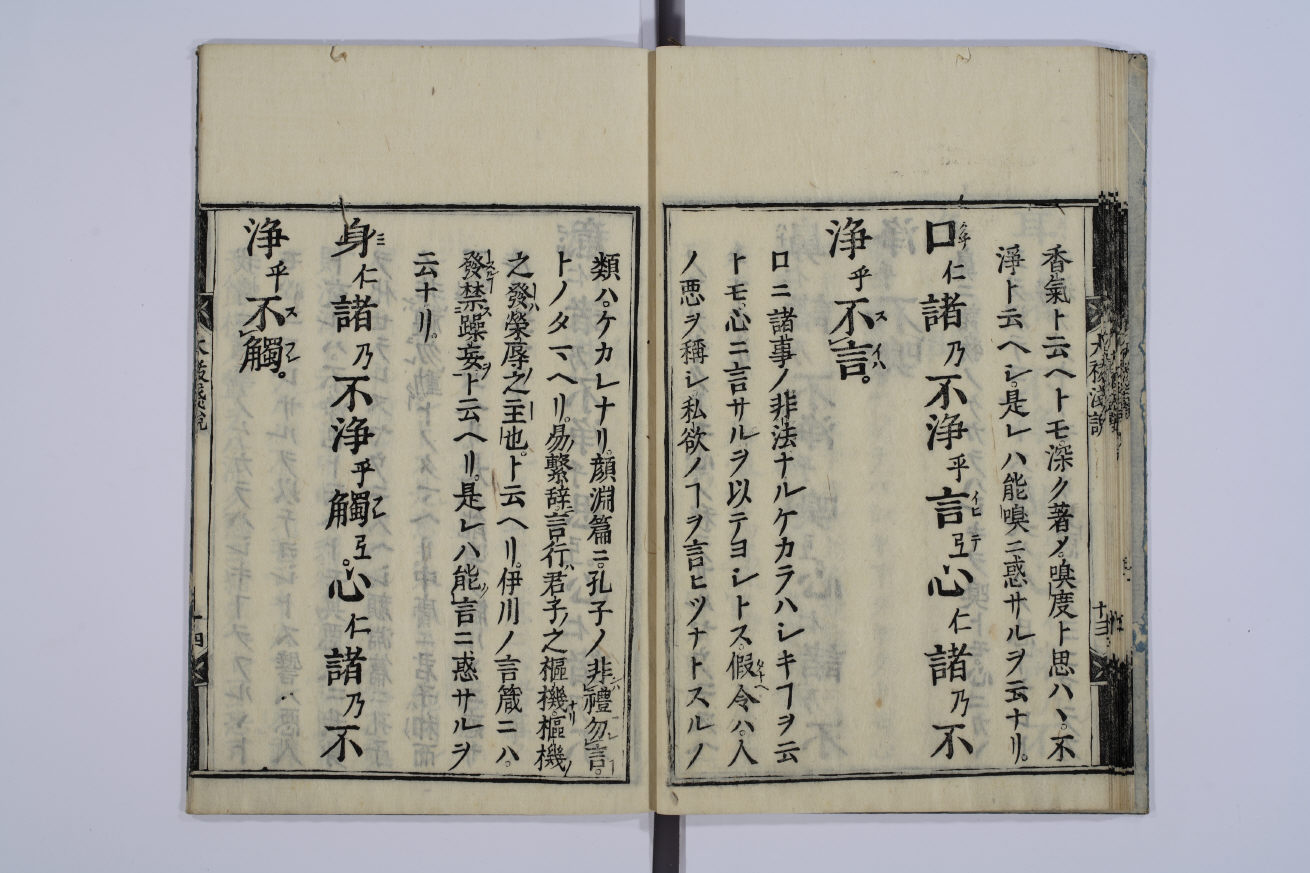 香氣ト云ヘトモ。深ク著メ。嗅度ト思ハヽ。不
淨ト云ヘシ。是レハ能嗅ニ惑サルヲ云ナリ。
口仁諸乃不淨乎言弖心仁諸乃不
淨乎不言。
口ニ諸事ノ非法ナルケカラハシキヿヲ云
トモ。心ニ言サルヲ以テヨシトス。假令ハ。人
ノ悪ヲ稱シ私欲ノヿヲ言ヒツナトスルノ
類ハ。ケカレナリ。顔淵篇ニ。孔子ノ非禮勿言。
トノタマヘリ。易繋辞。言行君子之樞機。樞機
之發榮辱之主也。ト云ヘリ。伊川ノ言箴ニハ。
發禁躁妄ト云ヘリ。是レハ能言ニ惑サルヲ
云ナリ。
身仁諸乃不淨乎觸弖。心仁諸乃不
淨乎不觸。
大秡淺說
十三
十四